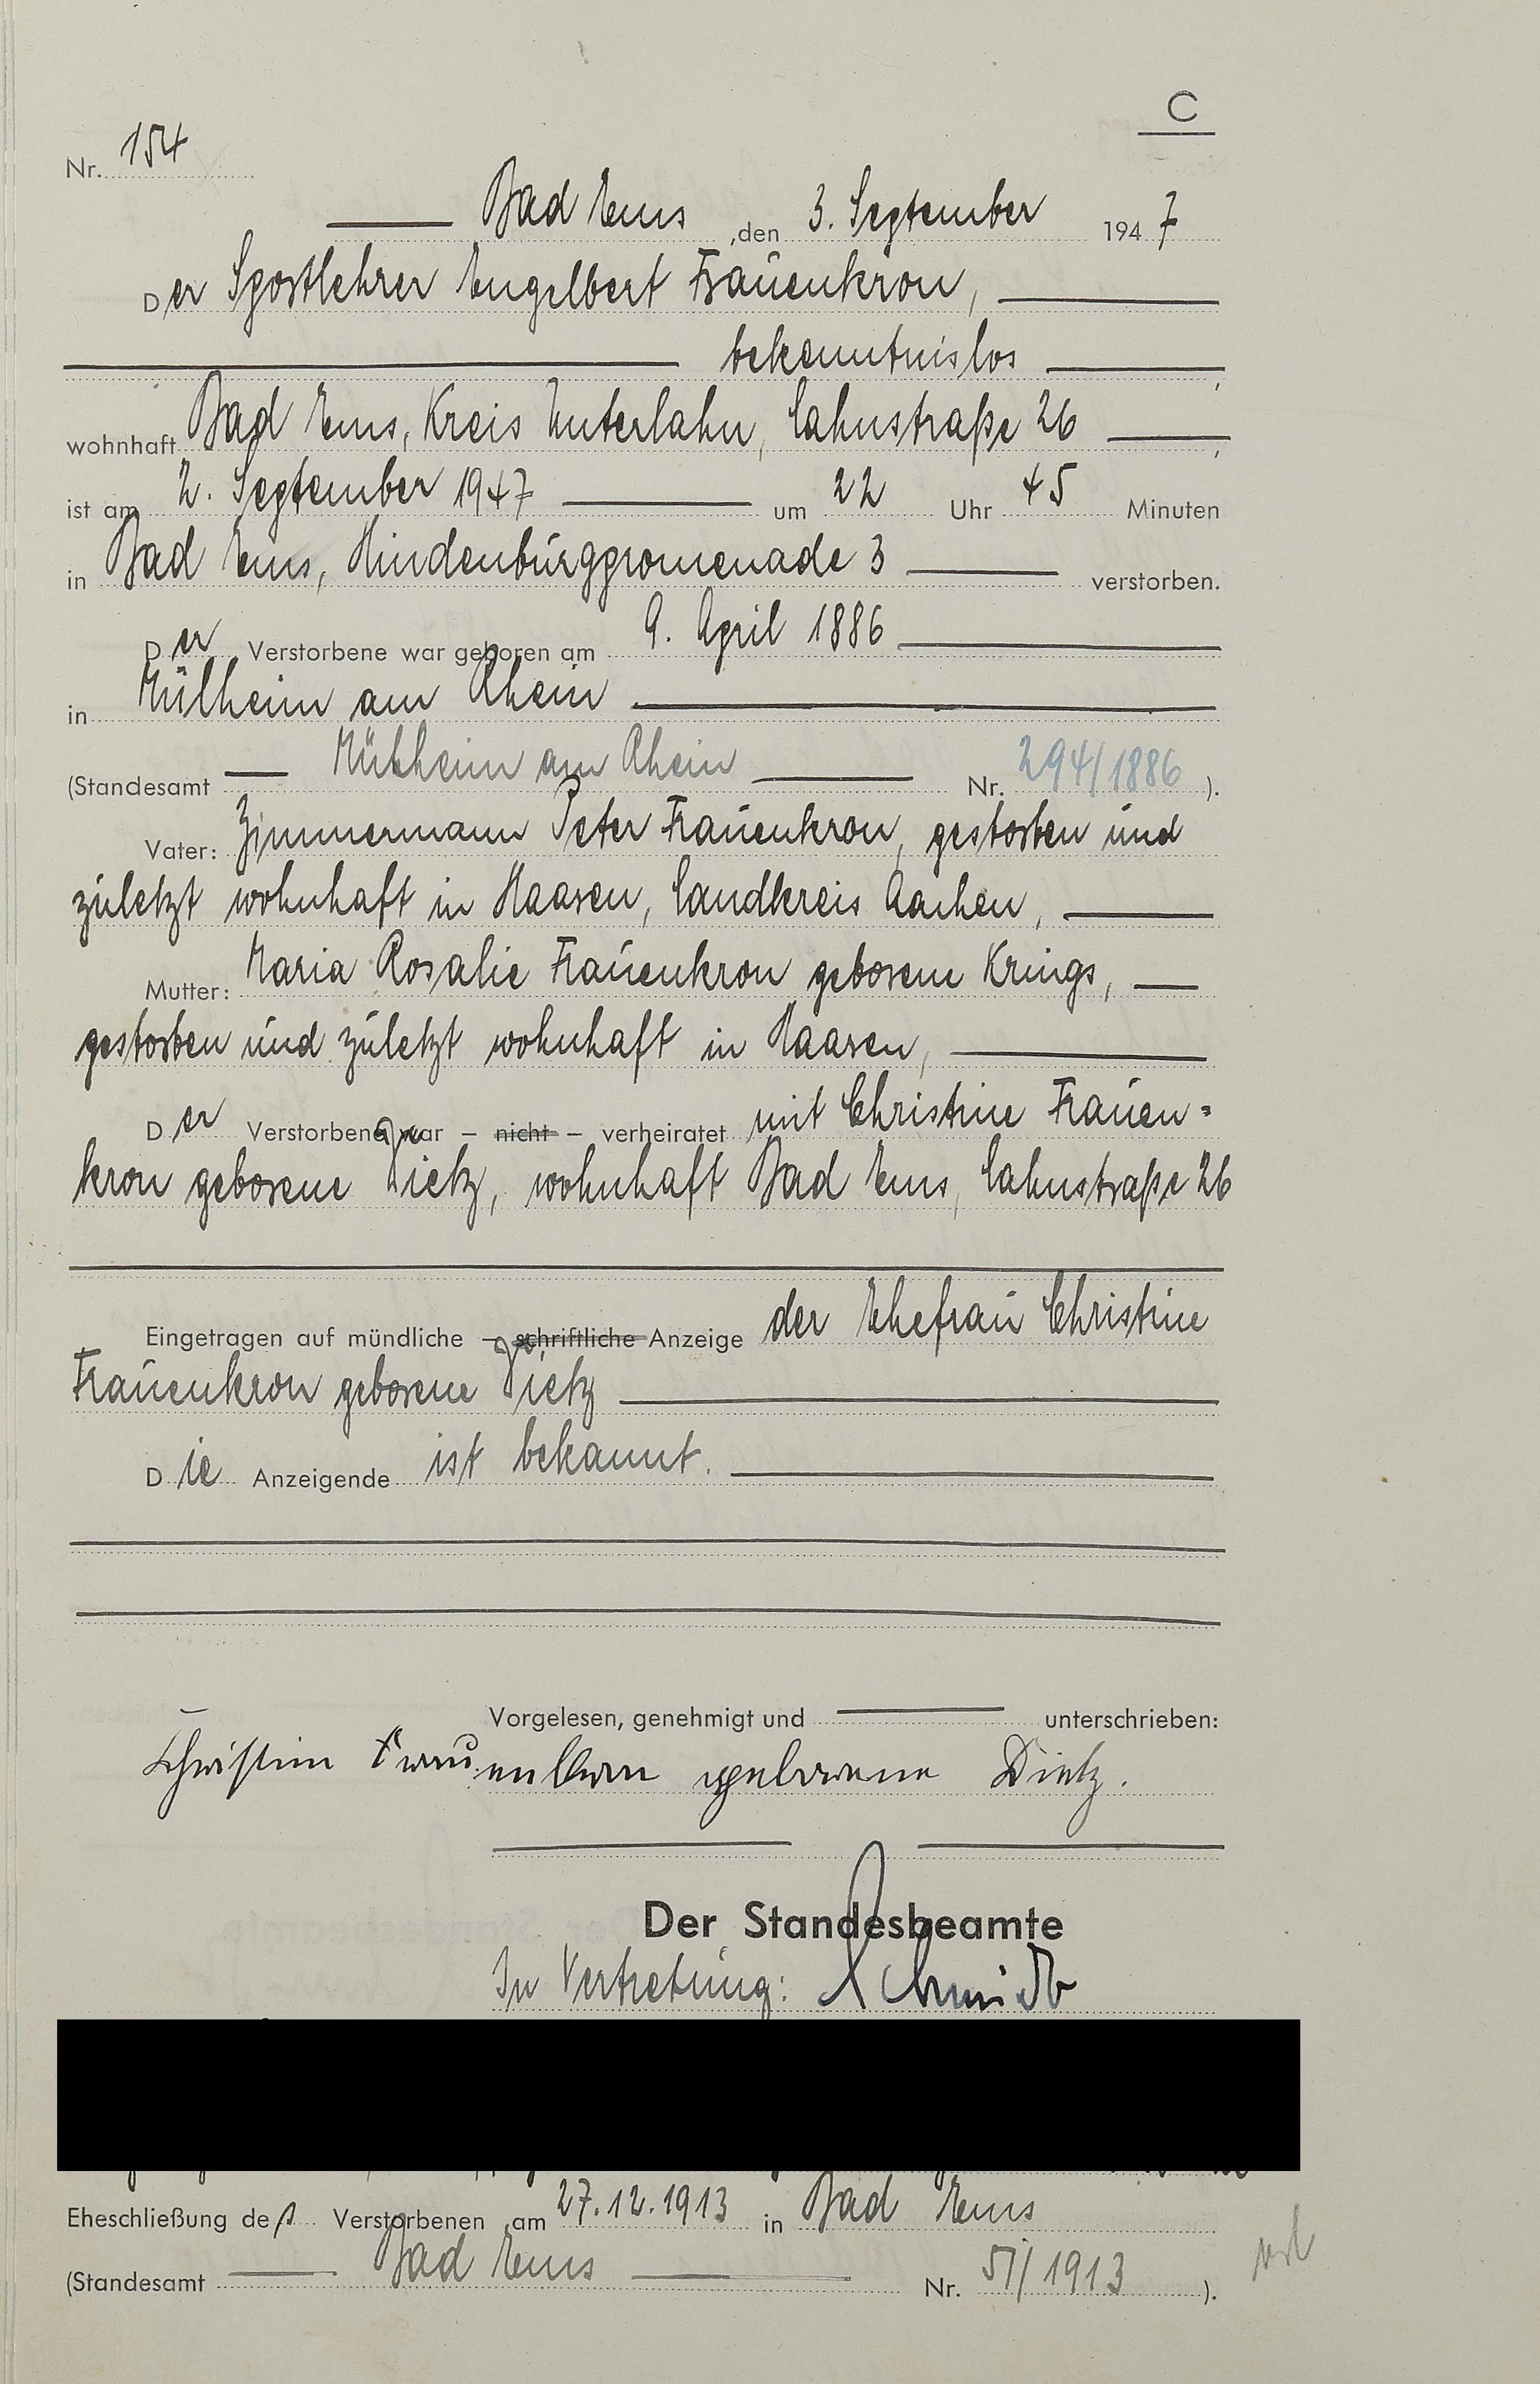 C
Nr. 154
Bad Ems, den 3. September 1947
Der Sportlehrer Engelbert Frauenkron,
bekenntnislos
wohnhaft Bad Ems, Kreis Unterlahn, Lahnstraße 26
ist am 2. September 1947 um 22 Uhr 45 Minuten
in Bad Ems, Hindenburgpromenade 3 verstorben.
Der Verstorbene war geboren am 9. April 1886
in Mülheim am Rhein
(Standesamt Mülheim am Rhein Nr. 294/1886).
Vater: Zimmermann Peter Frauenkron, gestorben und
zuletzt wohnhaft in Haaren, Landkreis Aachen,
Mutter: Maria Rosalie Frauenkron geborene Krings,
gestorben und zuletzt wohnhaft in Haaren,
Der Verstorbene war – nicht – verheiratet mit Christine Frauen=
kron geborene Dietz, wohnhaft Bad Ems, Lahnstraße 26
Eingetragen auf mündliche – schriftliche Anzeige der Ehefrau Christine
Frauenkron geborene Dietz
Die Anzeigende ist bekannt.
Vorgelesen, genehmigt und unterschrieben:
Christine Frauenkron geborene Dietz.
Der Standesbeamte
In Vertretung: Schmidt
Eheschließung des Verstorbenen am 27.12.1913 in Bad Ems
(Standesamt Bad Ems Nr. 51/1913).